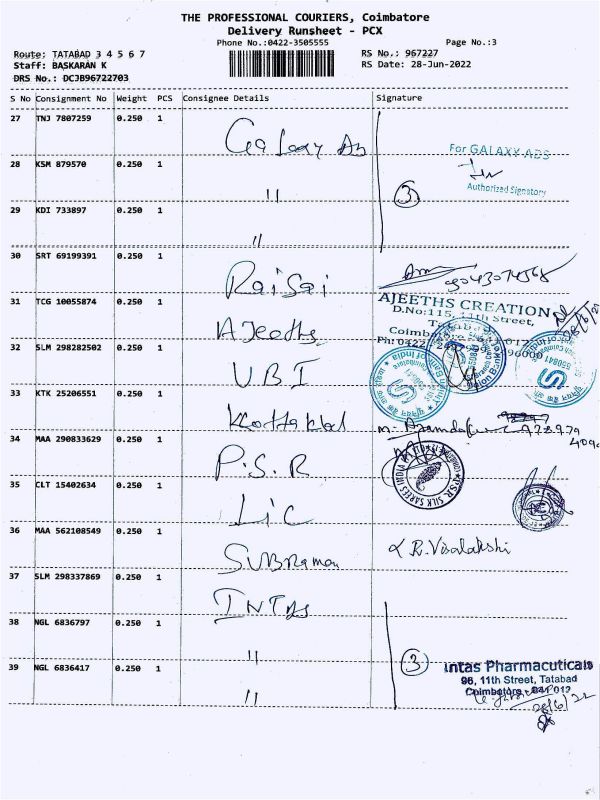 THE PROFESSIONAL COURIERS, Coimbatore
Delivery Runsheet - PCX
Phone No.:0422-3505555 Page No.:3
Route: TATABAD 3 4 5 6 7 RS No.: 967227
Staff: BASKARAN K RS Date: 28-Jun-2022
DRS No.: DCJB96722703
S No Consignment No Weight PCS Consignee Details Signature
27 TNJ 7807259 0.250 1 Galaxy Ads
For GALAXY ADS
Authorized Signatory
28 KSM 879570 0.250 1 "
3
29 KDI 733897 0.250 1 "
30 SRT 69199391 0.250 1 Rai Sai
9043074568
31 TCG 10055874 0.250 1 AJeeths
AJEETHS CREATION
D.No:115, 11th Street,
Tatabad
32 SLM 298282502 0.250 1 UBI
Union Bank of India
33 KTK 25206551 0.250 1
34 MAA 290833629 0.250 1 P.S.R
P.S.R. SILK SAREES INDIA
35 CLT 15402634 0.250 1 LIC
36 MAA 562108549 0.250 1 SUBRaman
R. Visalakshi
37 SLM 298337869 0.250 1 INTAS
38 NGL 6836797 0.250 1 "
3
39 NGL 6836417 0.250 1 "
Intas Pharmacuticals
96, 11th Street, Tatabad
Coimbatore - 641 012